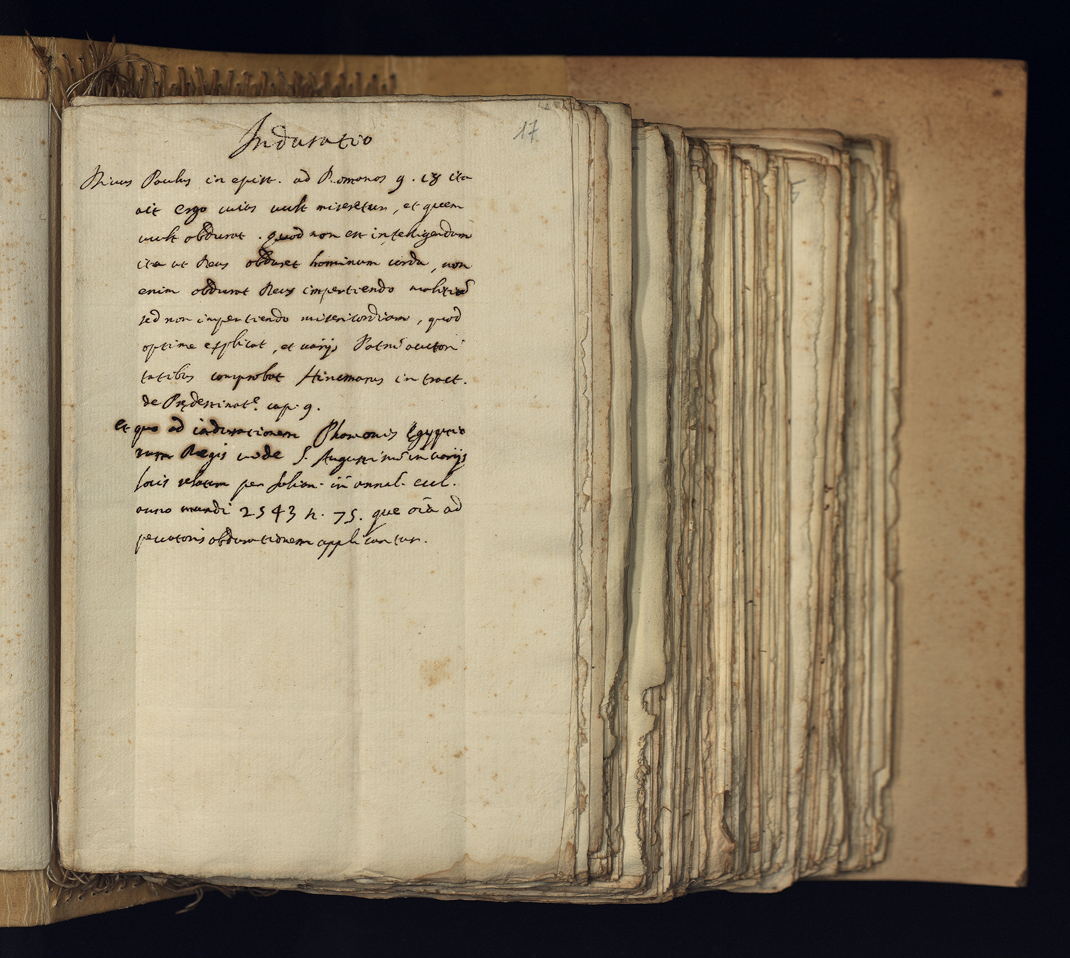 Induratio
17
Divus Paulus in epist. ad Romanos 9. 18 ita
ait ergo cuius vult miseretur, et quem
vult obdurat. quod non est intelligendum
ita ut Deus obduret hominum corda, non
enim obdurat Deus impertiendo malitiā
sed non impertiendo misericordiam, quod
optime explicat, et varijs Patrū auctori
tatibus comprobat Hincmarus in tract.
de Prędestinatᵉ. cap. 9.
Et quo ad indurationem Pharaonis Egyptio
rum Regis vide S. Augustinū in varijs
locis relatum per Salian. in annal. eccl.
anno mundi 2543 n. 75. que oīa ad
peccatoris obdurationem applicantur.